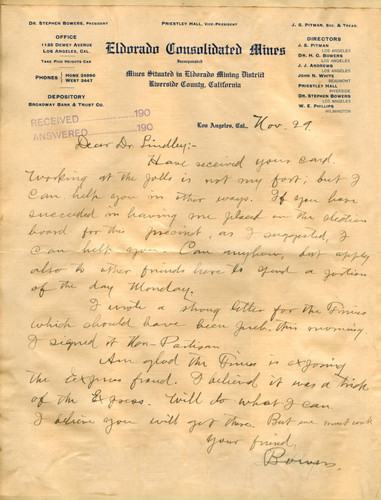 DR. STEPHEN BOWERS, PRESIDENT
PRIESTLEY HALL, VICE-PRESIDENT
J. S. PITMAN, SEC. & TREAS.
OFFICE
1135 DEWEY AVENUE
LOS ANGELES, CAL.
TAKE PICO HEIGHTS CAR
PHONES HOME 24990
WEST 2447
DEPOSITORY
BROADWAY BANK & TRUST CO.
Eldorado Consolidated Mines
Incorporated
Mines Situated in Eldorado Mining District
Riverside County, California
DIRECTORS
J. S. PITMAN
LOS ANGELES
DR. H. G. BOWERS
LOS ANGELES
J. J. ANDREWS
LOS ANGELES
JOHN N. WHITE
BEAUMONT
PRIESTLEY HALL
RIVERSIDE
DR. STEPHEN BOWERS
LOS ANGELES
W. E. PHILLIPS
WILMINGTON
RECEIVED 190
ANSWERED 190
Los Angeles, Cal., Nov. 29
Dear Dr. Lindley:-
Have received your card.
Working at the polls is not my fort; but I
can help you in other ways. If you have
succeeded in having me placed on the election
board for this precinct, as I suggested, I
can help you. Can anyhow, but apply
also to other friends have to spend a portion
of the day Monday.
I wrote a strong letter for the Times
which should have been pub. this morning
I signed it Non-Partisan
Am glad the Times is exposing
the Express fraud. I believed it was a trick
of the Express. Will do what I can
I believe you will get there. But we must work
Your friend,
Bowers